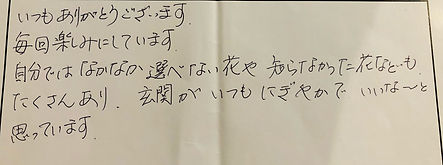 いつもありがとうございます.
毎回楽しみにしています.
自分ではなかなか選べない花や知らなかった花なども
たくさんあり. 玄関がいつもにぎやかでいいな〜と
思っています.